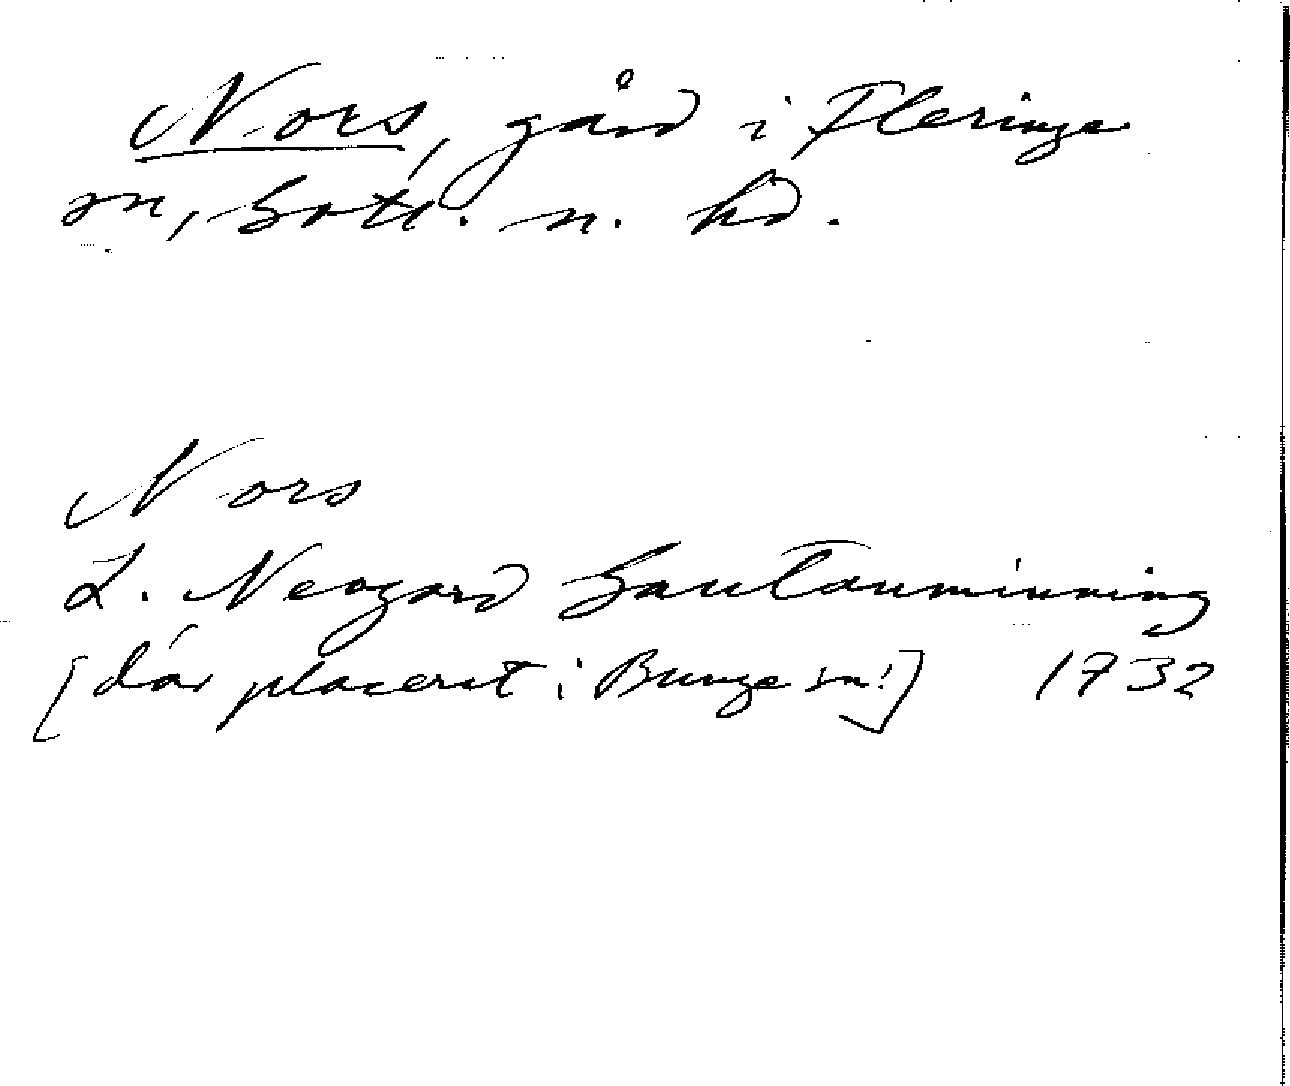 Nors, gård i Fleringe
sn, Gotl. n. hd.
Nors
L. Neogard Gautauminning
[där placerat i Bunge sn!] 1732